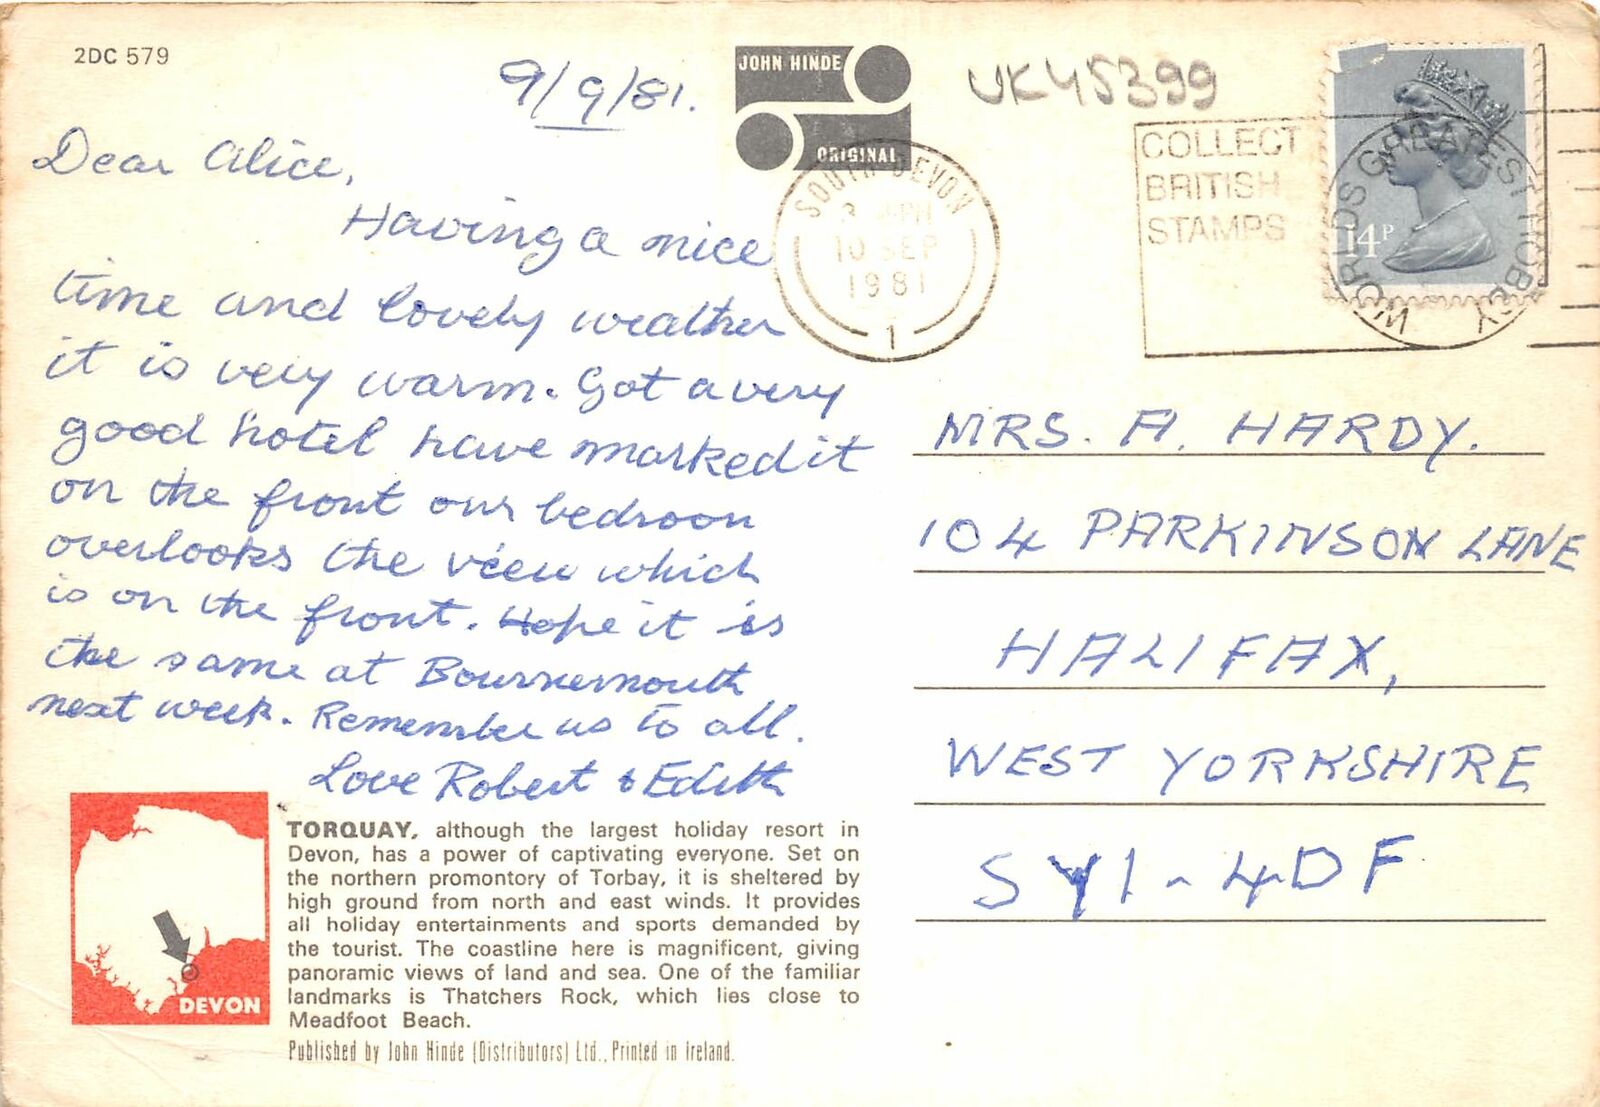 2DC 579
9/9/81.
JOHN HINDE
ORIGINAL
UK45399
Dear Alice,
Having a nice
time and lovely weather
it is very warm. Got a very
good hotel have marked it
on the front our bedroon
overlooks the view which
is on the front. Hope it is
the same at Bournemouth
next week. Remember us to all.
Love Robert & Edith
SOUTH DEVON
PM
10 SEP
1981
1
COLLECT
BRITISH
STAMPS
WORLDS GREATEST HOBBY
14P
MRS. A. HARDY.
104 PARKINSON LANE
HALIFAX,
WEST YORKSHIRE
SY1-4DF
DEVON
TORQUAY, although the largest holiday resort in
Devon, has a power of captivating everyone. Set on
the northern promontory of Torbay, it is sheltered by
high ground from north and east winds. It provides
all holiday entertainments and sports demanded by
the tourist. The coastline here is magnificent, giving
panoramic views of land and sea. One of the familiar
landmarks is Thatchers Rock, which lies close to
Meadfoot Beach.
Published by John Hinde (Distributors) Ltd., Printed in Ireland.